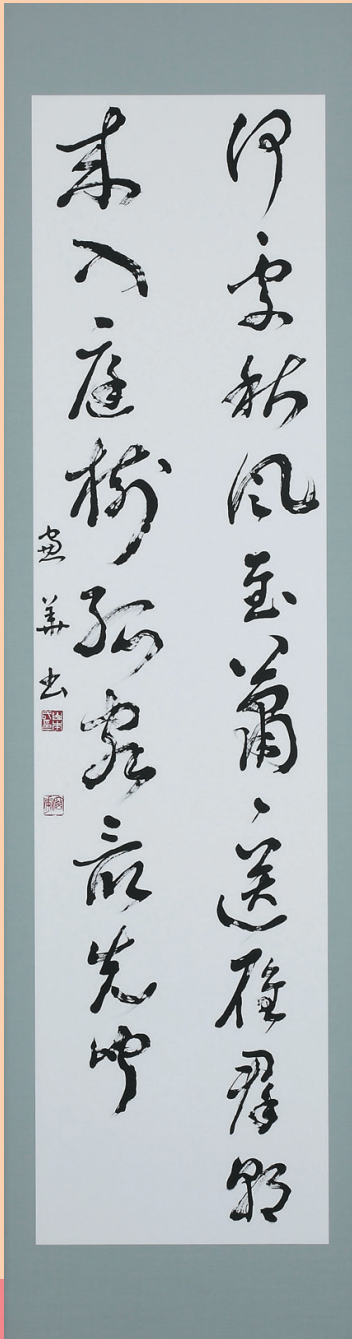 何處秋風至蕭々送雁群朝
來入庭樹孤客最先聞
華書